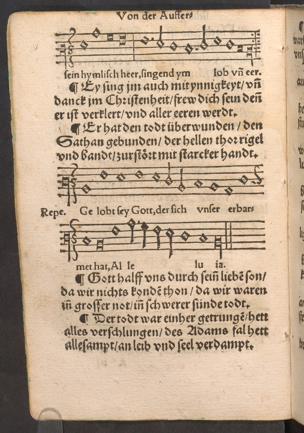 Von der Auffer⸗
sein hymlisch heer, singend ym lob vñ eer.
¶ Ey sing jm auch mit ynnigkeyt / vñ
danck im Christenheit / frew dich sein deñ
er ist verklert / vnd aller eeren werdt.
¶ Er hat den todt überwunden / den
Sathan gebunden / der hellen thor rigel
vnd bandt / zurstört mit starcker handt.
Repe. Ge lobt sey Gott, der sich vnser erbar⸗
met hat, Al le lu ia.
¶ Gott halff vns durch seiñ liebẽ son /
da wir nichts kondẽ thon / da wir waren
iñ grosser not / iñ schwerer sünde todt.
¶ Der todt war einher getrungẽ / hett
alles verschlungen / des Adams fal hett
allesampt / an leib vnd seel verdampt.